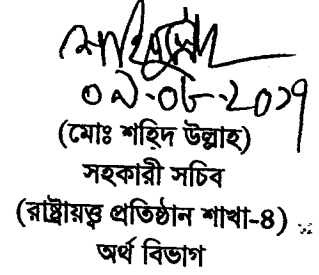 (মোঃ শহিদ উল্লাহ)
সহকারী সচিব
(রাষ্ট্রায়ত্ত্ব প্রতিষ্ঠান শাখা-৪)
অর্থ বিভাগ